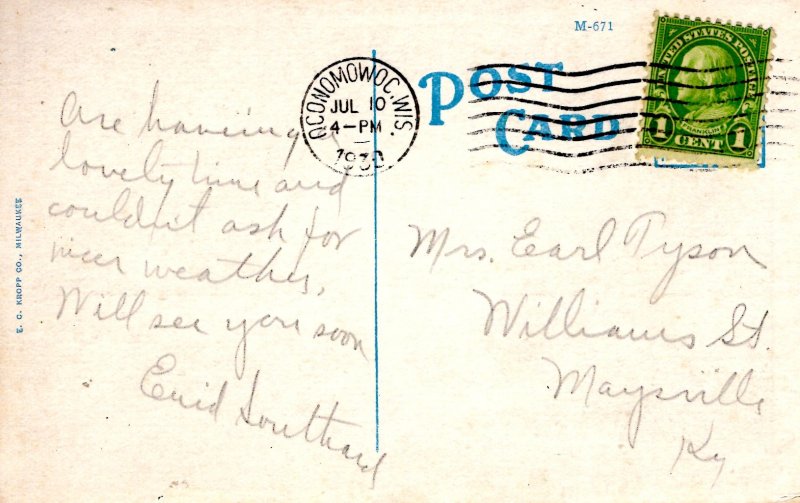 M-671
POST
CARD
OCONOMOWOC, WIS.
JUL 10
4-PM
1930
UNITED STATES POSTAGE
FRANKLIN
1 CENT 1
Are having a
lovely time and
couldn't ask for
nicer weather,
Will see you soon
Enid Southard
Mrs. Earl Tyson
Williams St.
Maysville
Ky
E. C. KROPP CO., MILWAUKEE